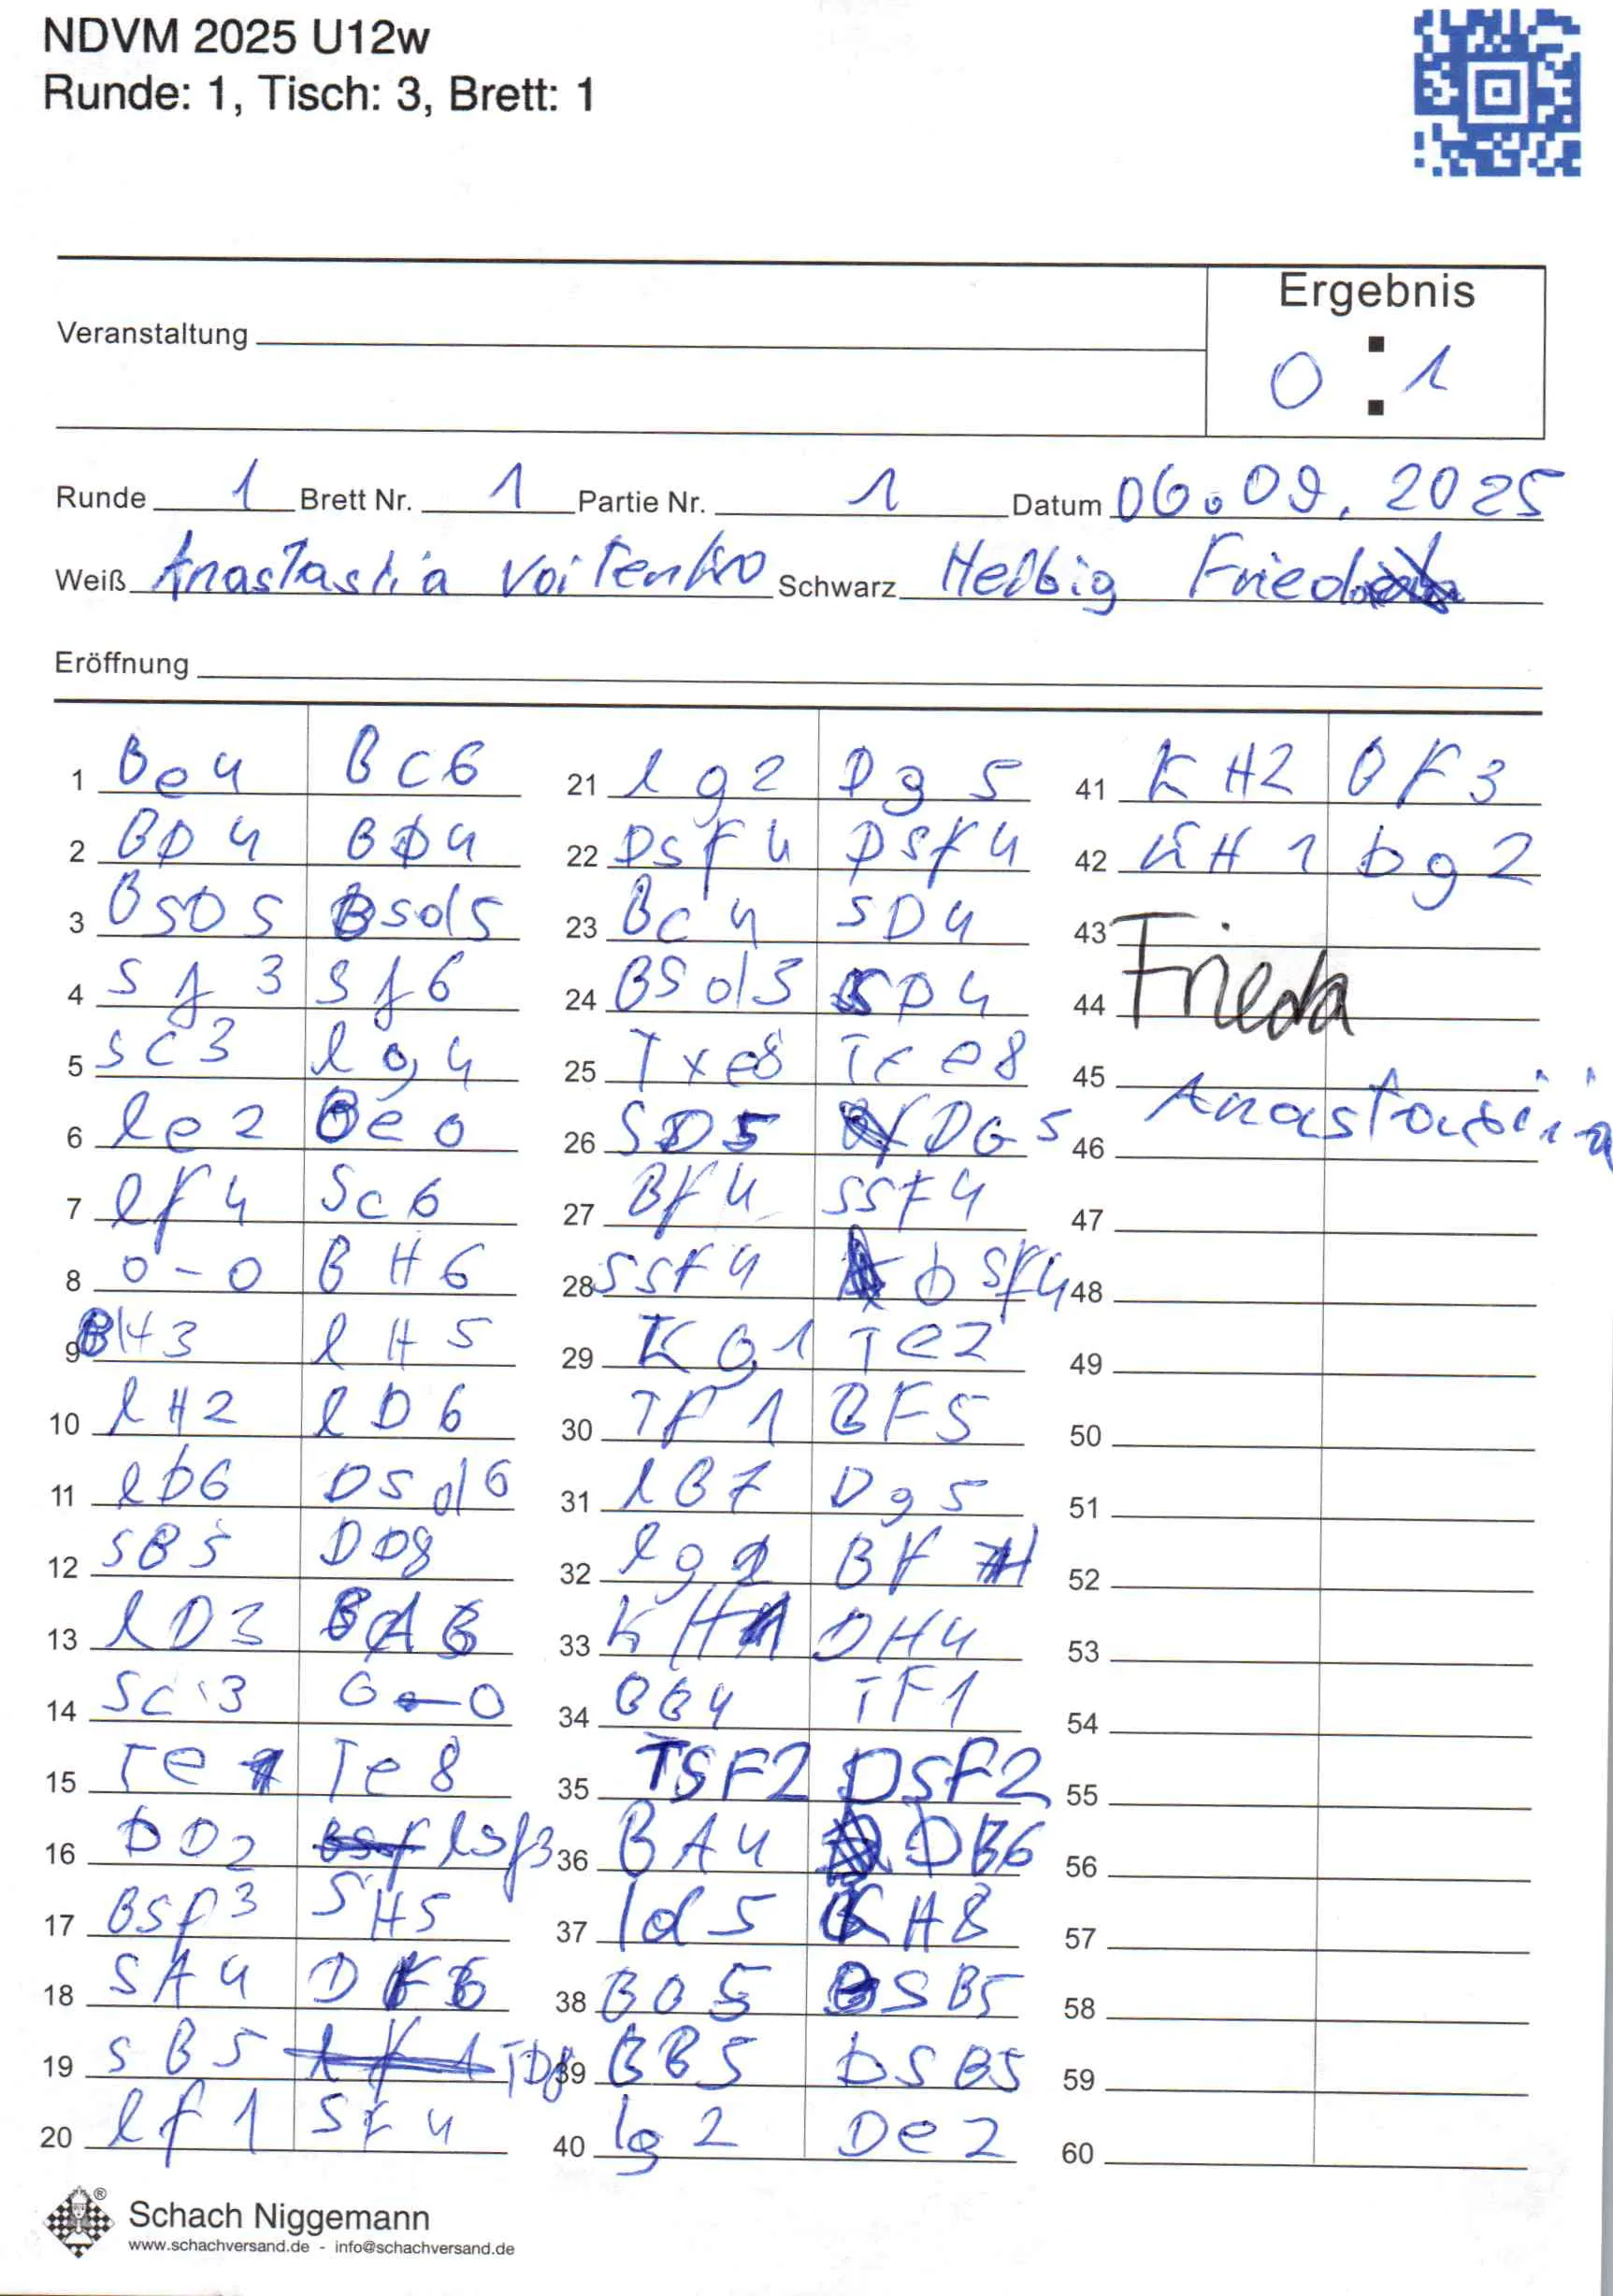 NDVM 2025 U12w
Runde: 1, Tisch: 3, Brett: 1
Ergebnis
Veranstaltung
0 : 1
Runde 1 Brett Nr. 1 Partie Nr. 1 Datum 06.09.2025
Weiß Anastasiia Voitenko Schwarz Helbig Frieda
Eröffnung
1 Be4 Bc6
2 BD4 BD4
3 BsD5 Bsd5
4 Sf3 Sf6
5 Sc3 lg4
6 le2 Be6
7 lf4 Sc6
8 0-0 BH6
9 BH3 lH5
10 lH2 lD6
11 lD6 DSd6
12 SB5 DD8
13 lD3 BA6
14 Sc3 0-0
15 Te1 Te8
16 DD2 lsf3
17 Bsf3 SH5
18 SA4 DF6
19 SB5 TD8
20 lf1 SF4
21 lg2 Dg5
22 Dsf4 Dsf4
23 Bc4 SD4
24 BSd5 SD4
25 Txe8 Txe8
26 SD5 DG5
27 Bf4 SSF4
28 SSF4 DSF4
29 Kg1 Te2
30 TF1 BF5
31 lB7 Dg5
32 lg2 BF4
33 KH1 DH4
34 BB4 TF1
35 TSF2 DSF2
36 BA4 DB6
37 ld5 KH8
38 BD5 BSB5
39 BB5 DSB5
40 lg2 De2
41 KH2 BF3
42 KH1 Dg2
43
44 Frieda
45
46 Anastasiia
47
48
49
50
51
52
53
54
55
56
57
58
59
60
Schach Niggemann
www.schachversand.de - info@schachversand.de